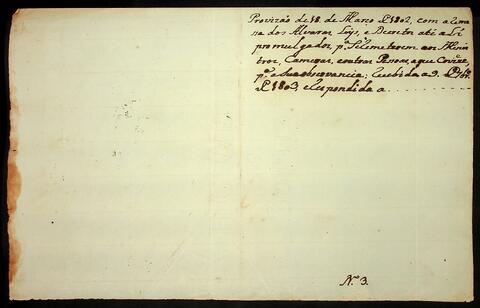 Provizão de 18. de Março de 1802, com a reme
ssa dos Alvaras Leys, e Decretos até ali
promulgados, pª. se remeterem aos Minis
tros, Camaras, e outras Pessoas, a que
pª. a sua observancia; recebida a 9. de
de 1803, e respondida a . . . . . . . . . .
Nº. 3.